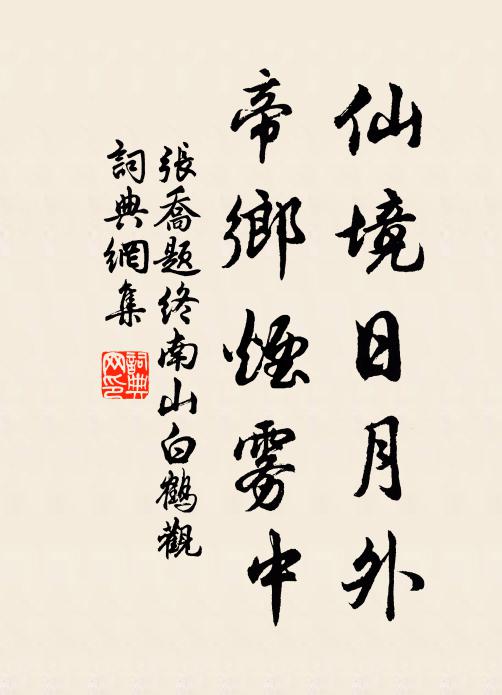 仙境日月外
帝鄉煙雾中
張喬题终南山白鶴觀
詞典網集
詞典网印